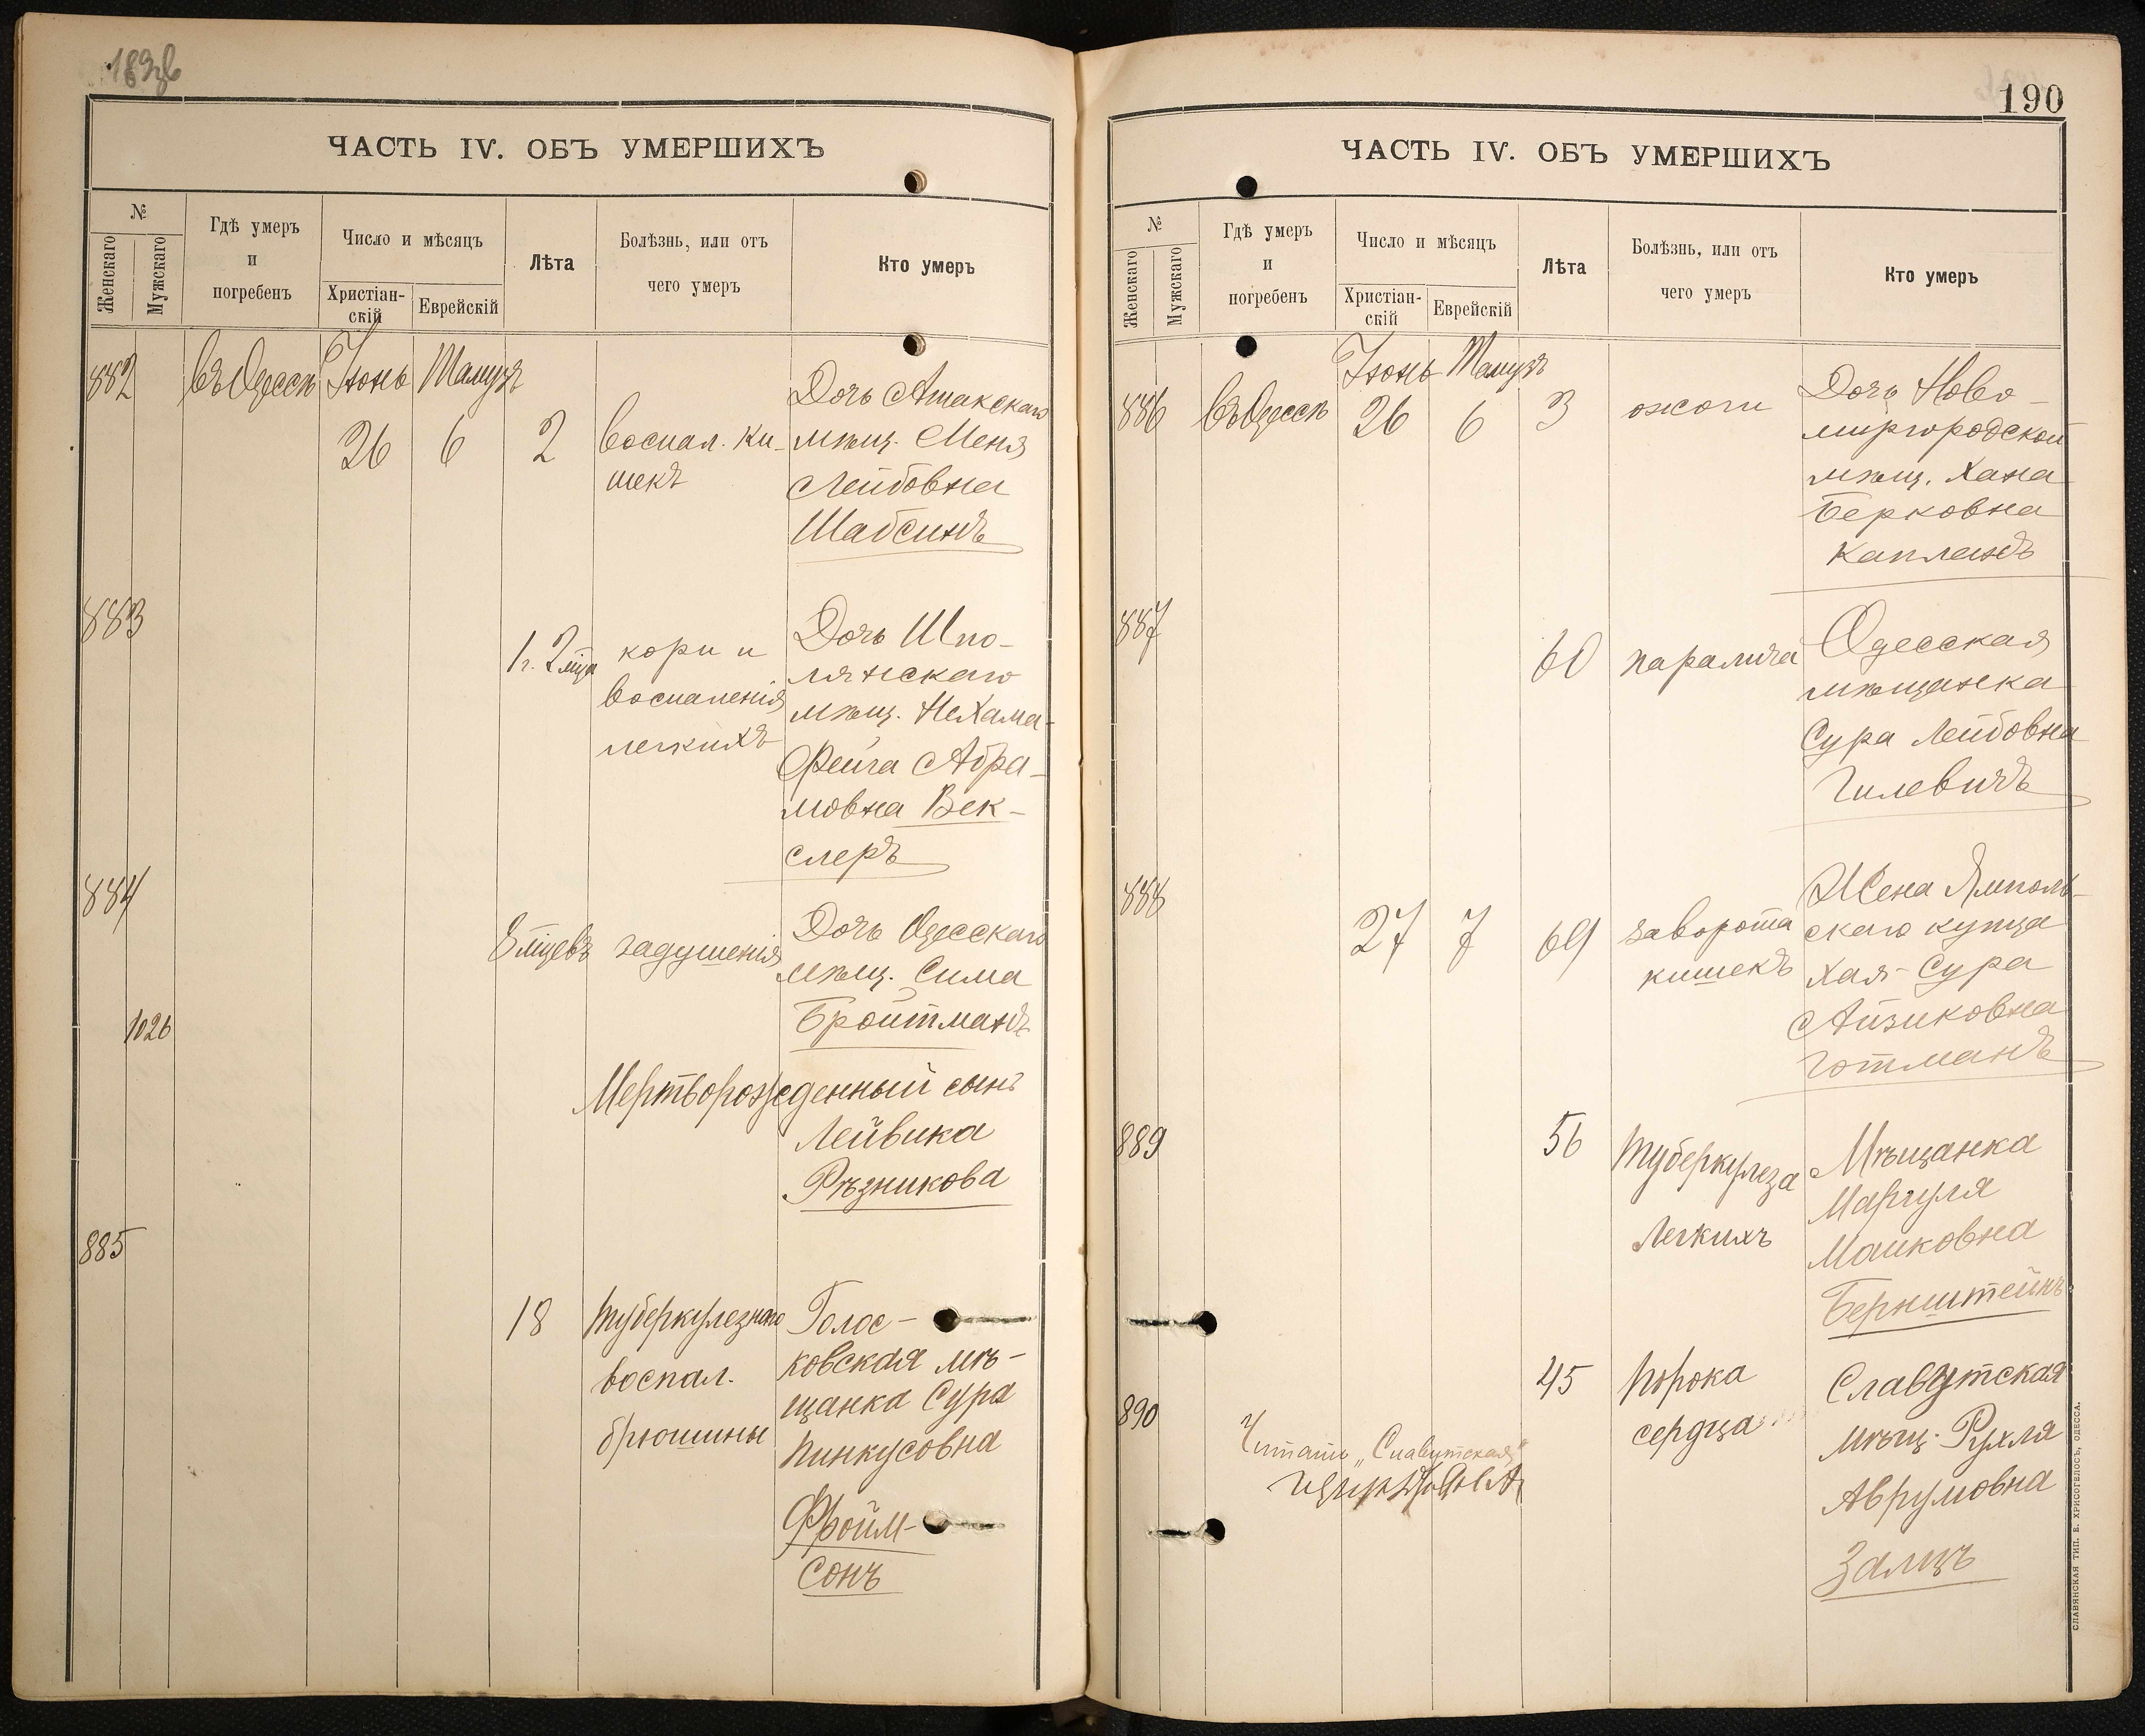 ЧАСТЬ IV. ОБЪ УМЕРШИХЪ
№
Женскаго
Мужскаго
Гдѣ умеръ
и
погребенъ
Число и мѣсяцъ
Христіан-
скій
Еврейскій
Лѣта
Болѣзнь, или отъ
чего умеръ
Кто умеръ
882 въ Одессѣ Іюнь Тамузъ
26 6 2
воспал. ки-
шекъ
Дочь Атакскаго
мѣщ. Меня
Лейбовна
Шабсинъ
883
1 г. 2 мца
кори и
воспаленія
легкихъ
Дочь Шпо-
лянскаго
мѣщ. Нехама-
Фейга Абра-
мовна Век-
слеръ
884
8 мцевъ задушенія
Дочь Одесскаго
мѣщ. Сима
Бройтманъ
1026
Мертворожденный сынъ
Лейвика
Рѣзникова
885
18
туберкулезнаго
воспал.
брюшины
Голос-
ковская мѣ-
щанка Сура
Пинкусовна
Фройм-
сонъ
190
ЧАСТЬ IV. ОБЪ УМЕРШИХЪ
№
Женскаго
Мужскаго
Гдѣ умеръ
и
погребенъ
Число и мѣсяцъ
Христіан-
скій
Еврейскій
Лѣта
Болѣзнь, или отъ
чего умеръ
Кто умеръ
Іюнь Тамузъ
886 въ Одессѣ 26 6 3 ожоги
Дочь Ново-
миргородской
мѣщ. Хана
Берковна
Капланъ
887
60 паралича
Одесская
мѣщанка
Сура Лейбовна
Гилевичъ
888
27 7 69
заворота
кишекъ
Жена Ямполь-
скаго купца
Хая-Сура
Айзиковна
Готманъ
889
56
туберкулеза
легкихъ
Мѣщанка
Маргуля
Манковна
Бернштейнъ
890
45
порока
сердца
Славутская
мѣщ. Рухля
Аврумовна
Залцъ
Читать „Славутская"
СЛАВЯНСКАЯ ТИП. Е. ХРИСОГЕЛОСЪ, ОДЕССА.